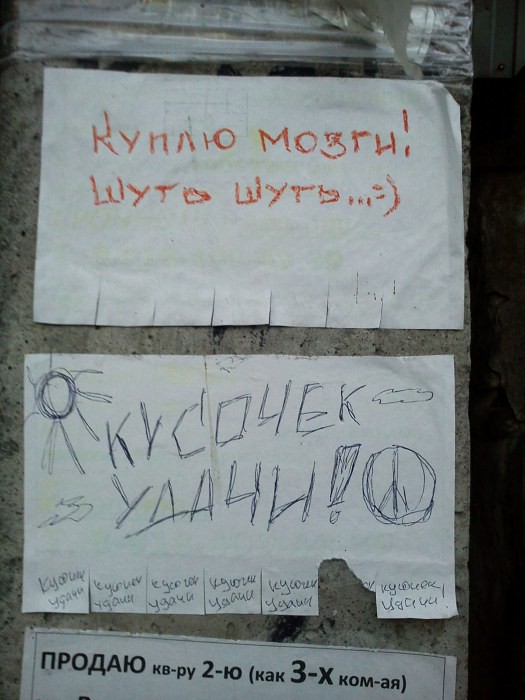 КУПЛЮ МОЗГИ!
ШУТЬ ШУТЬ...=)
КУСОЧЕК
УДАЧИ!
кусочек удачи
кусочек удачи
кусочек удачи
кусочек удачи
кусочек удачи
кусочек удачи!
ПРОДАЮ кв-ру 2-ю (как 3-х ком-ая)